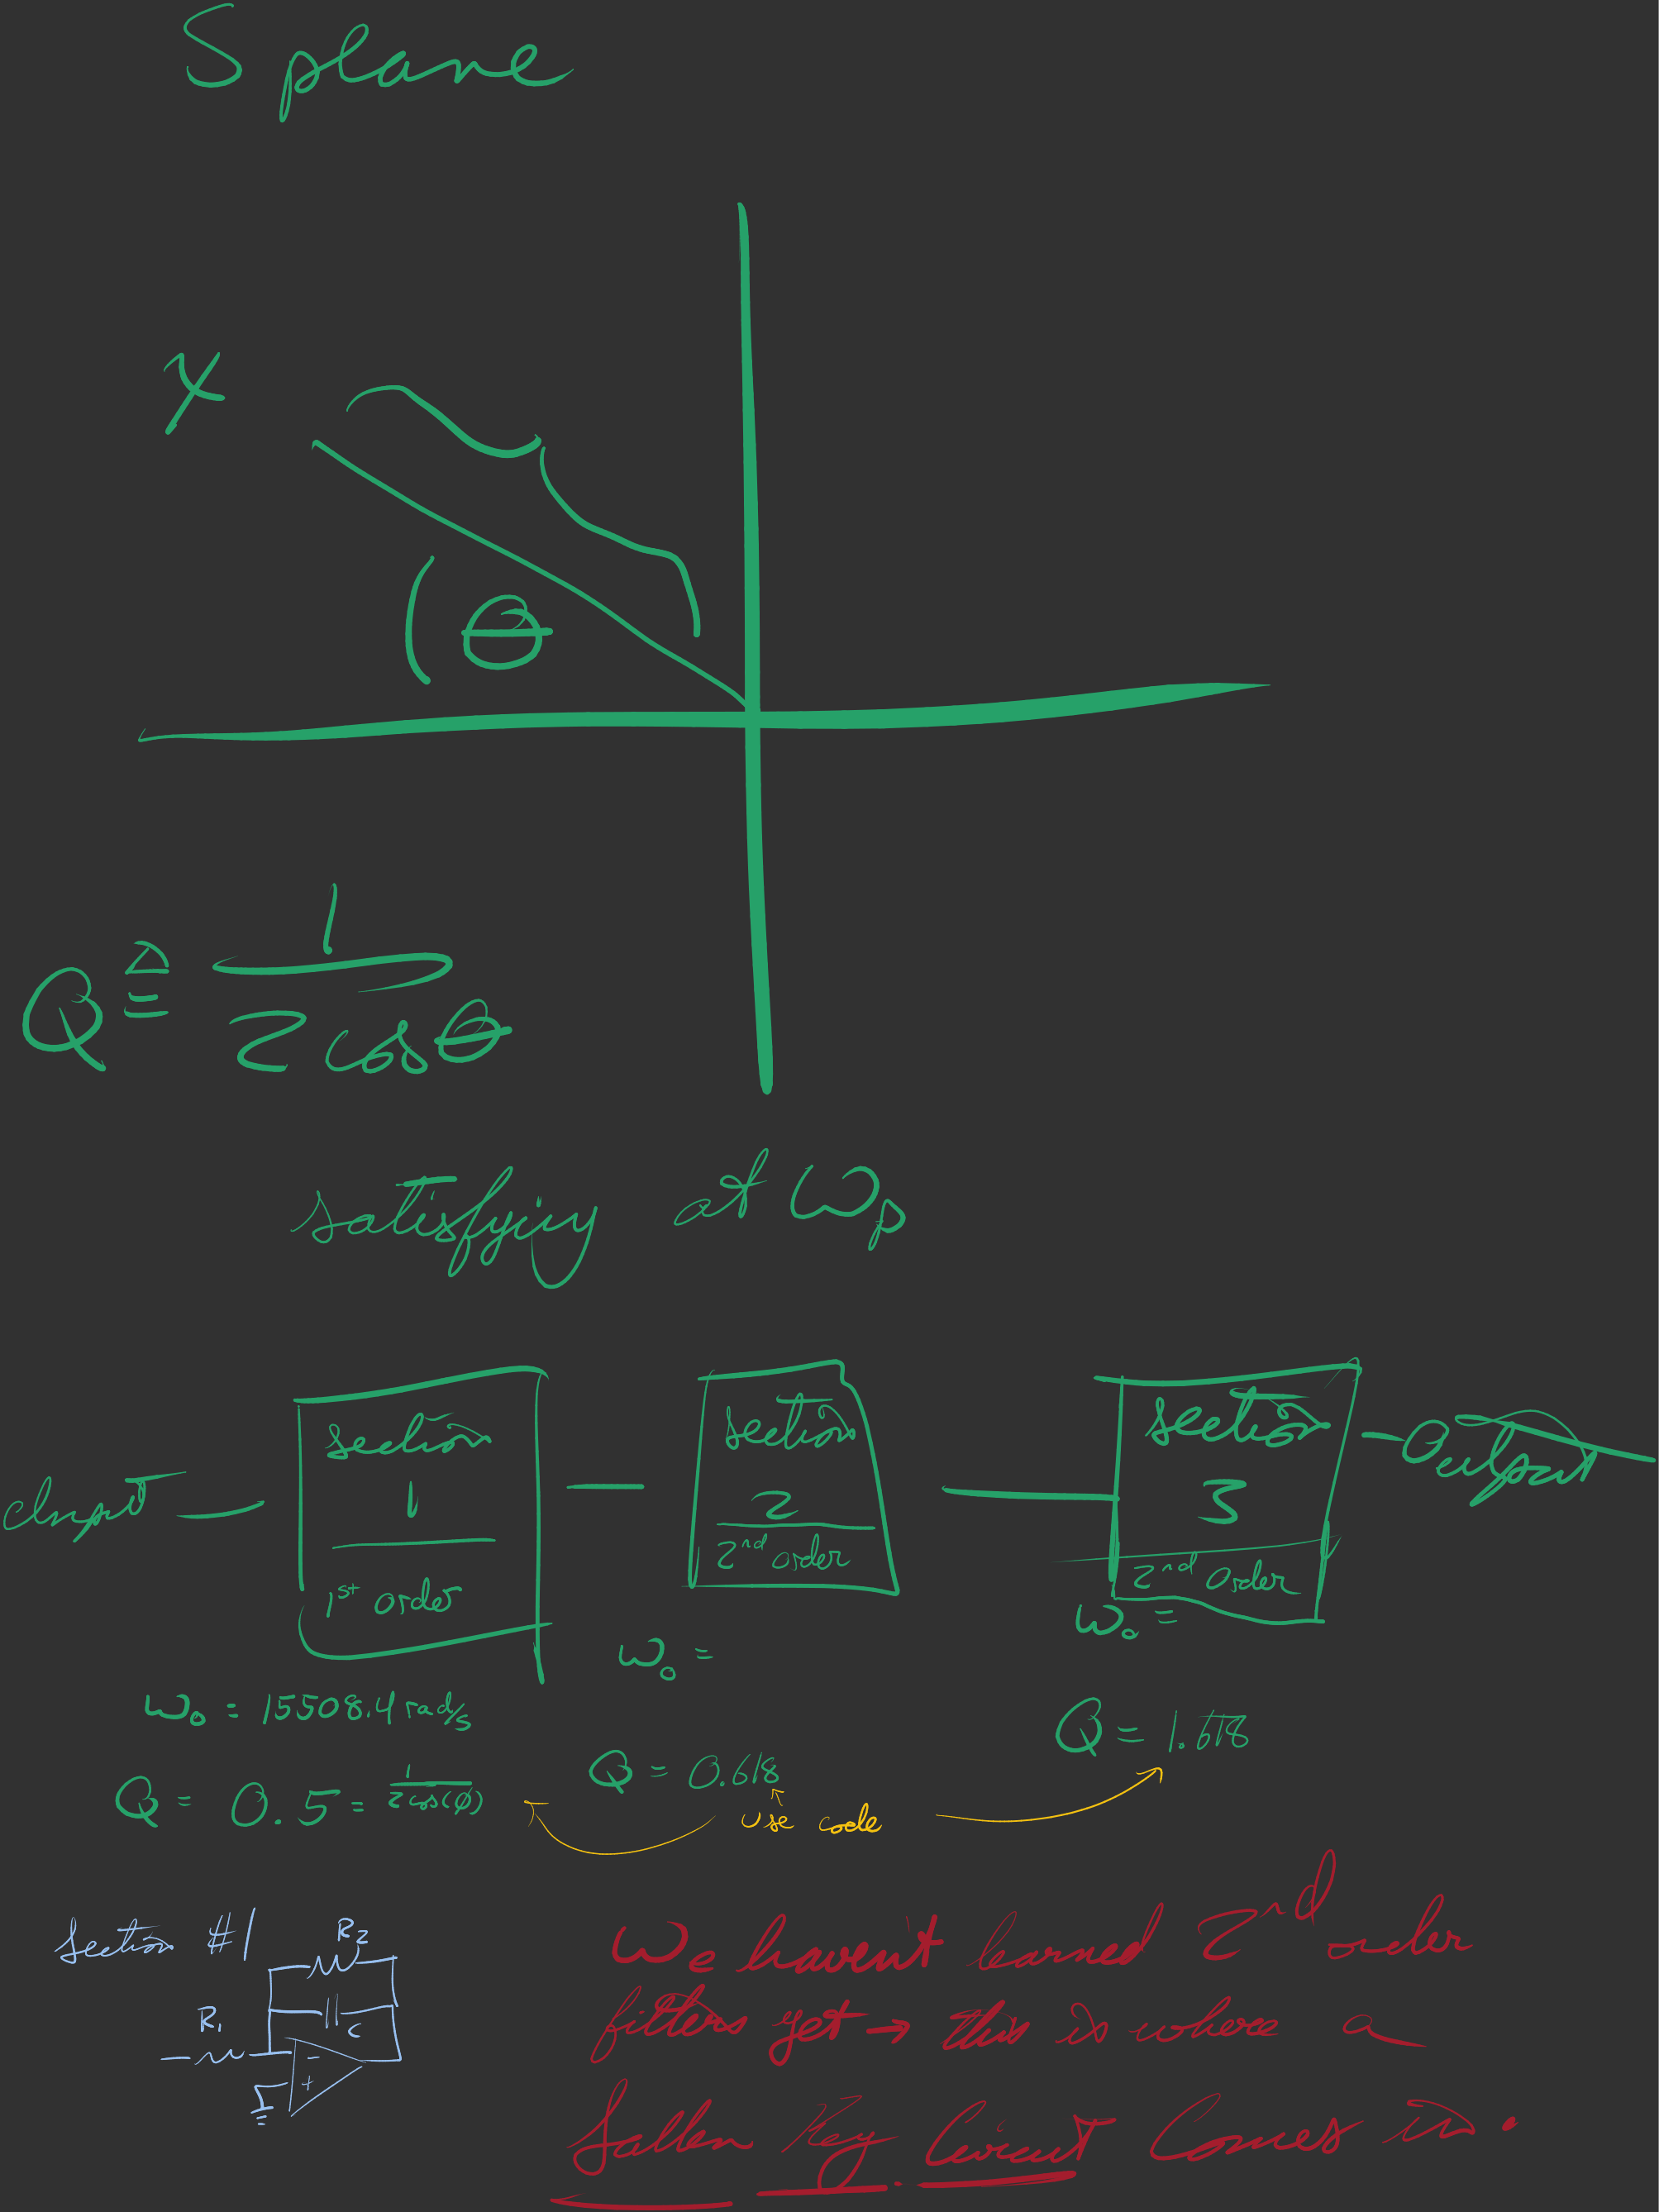 S plane
X
θ
Q ≜ 1 / 2 cos θ
satisfying at ωp
Input
section 1
1st order
section 2
2nd order
section 3
2nd order
Output
ω0 = 15508.4 rad/s
ω0 =
ω0 =
Q = 0.5 = 1 / 2cos(0)
Q = 0.618
Q = 1.618
use code
Section #1
R2
C
R1
-
+
We haven't learned 2nd order
filters yet → this is where a
Sallen Key Circuit Comes in.